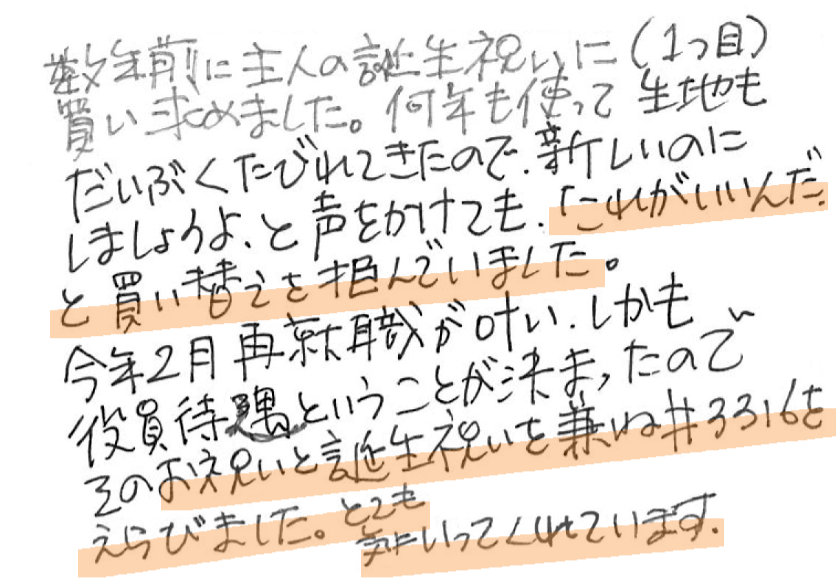 数年前に主人の誕生祝いに(1つ目)
買い求めました。何年も使って 生地も
だいぶくたびれてきたので、新しいのに
しましょうよ、と声をかけても、「これがいいんだ」
と買い替えを拒んでいました。
今年2月再就職が叶い、しかも
役員待遇ということが決まったので
そのお祝いと誕生祝いを兼ね#3316を
えらびました。とても
気にいってくれています。